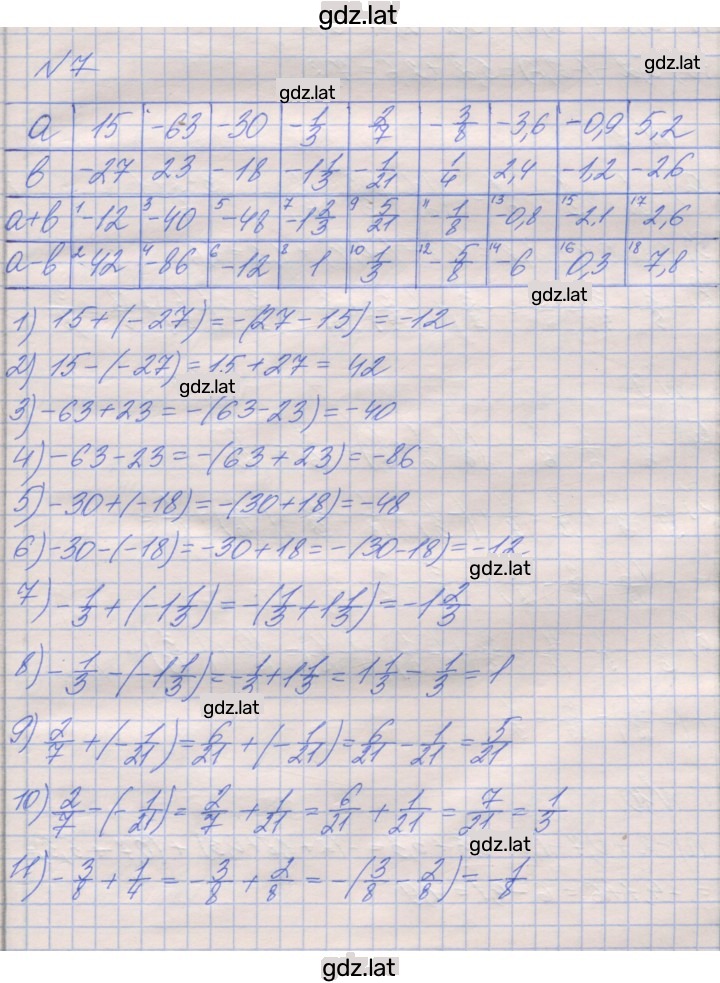 gdz.lat
N 7
gdz.lat
gdz.lat
a 15 -63 -30 -1/3 2/7 -3/8 -3,6 -0,9 5,2
b -27 23 -18 -1 1/3 -1/21 1/4 2,4 -1,2 -2,6
a+b 1 -12 3 -40 5 -48 7 -1 2/3 9 5/21 11 -1/8 13 -0,8 15 -2,1 17 2,6
a-b 2 42 4 -86 6 -12 8 1 10 1/3 12 -5/8 14 -6 16 0,3 18 7,8
gdz.lat
1) 15+(-27)=-(27-15)=-12
2) 15-(-27)=15+27= 42
gdz.lat
3) -63+23=-(63-23)=-40
4) -63-23=-(63+23)=-86
5) -30+(-18)=-(30+18)=-48
6) -30-(-18)=-30+18=-(30-18)=-12
gdz.lat
7) -1/3+(-1 1/3)=-(1/3+1 1/3)=-1 2/3
8) -1/3-(-1 1/3)=-1/3+1 1/3=1 1/3-1/3=1
gdz.lat
9) 2/7+(-1/21)=6/21+(-1/21)=6/21-1/21=5/21
10) 2/7-(-1/21)=2/7+1/21=6/21+1/21=7/21=1/3
gdz.lat
11) -3/8+1/4=-3/8+2/8=-(3/8-2/8)=-1/8
gdz.lat